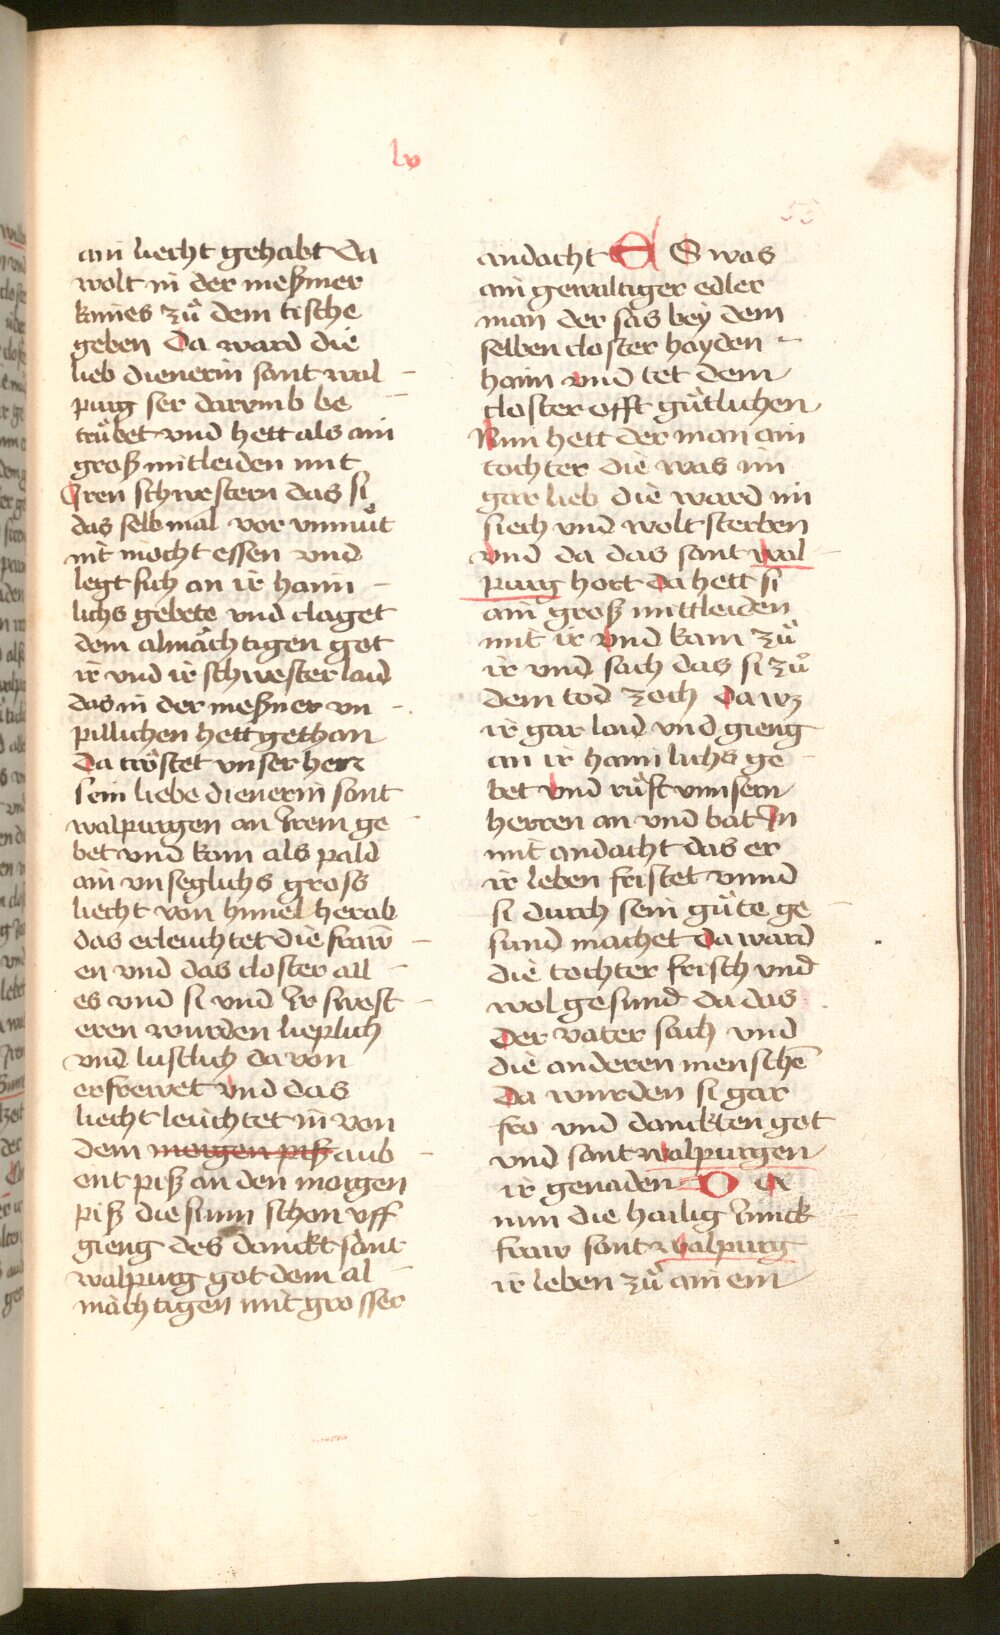 lv
55
ain liecht gehabt da
wolt in der meßmer
kaines zů dem tische
geben Da ward die
lieb dienerin sant wal
purg ser darvmb be
trůbet vnd hett als ain
groß mitleiden mit
Iren schwestern das si
das selb mal vor vnmůt
nit mocht essen vnd
legt sich an ir haim
lichs gebete vnd claget
dem almåchtigen got
ir vnd ir schwester laid
das in der meßner vn
pillichen hett gethan
Da tröstet vnser herr
sein liebe dienerin sant
walpurgen an Irem ge
bet vnd kam als pald
ain vnseglichs gross
liecht von himel herab
das erleuchtet die fraw̄
en vnd das closter all
es vnd si vnd Ir swest
eren wurden lieplich
vnd lustlich da von
erfrewet vnd das
liecht leuchtet in von
dem morgen piß aub
ent piß an den morgen
piß die sunn schon vff
gieng des danckt sant
walpurg got dem al
måchtigen mit grosser
andacht ES was
ain gewaltiger edler
man der sås bey dem
selben closter hayden
haim vnd tet dem
closter offt gůtlichen
Nun hett der man ain
tochter die was im
gar lieb die ward im
siech vnd wolt sterben
vnd da das sant wal
purg hort da hett si
ain groß mittleiden
mit ir vnd kam zů
ir vnd sach das si zů
dem tod zoch Da wz
ir gar laid vnd gieng
an ir haimlichs ge
bet vnd růft vnnsern
herren an vnd bat In
mit andacht das er
ir leben fristet vnnd
si durch sein gůte ge
sund machet Da ward
die tochter frisch vnd
wol gesund da das
Der vater sach vnd
die anderen menschē
Da wurden si gar
fro vnd danckten got
vnd sant walpurgen
ir genaden DA
nun die hailig Iunck
fraw sant walpurg
ir leben zů ainem